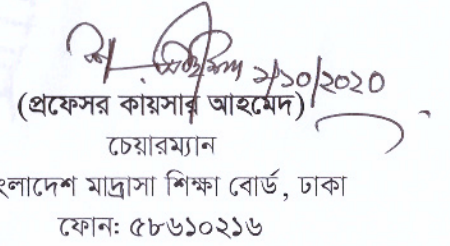 ১/১০/২০২০
(প্রফেসর কায়সার আহমেদ)
চেয়ারম্যান
ংলাদেশ মাদ্রাসা শিক্ষা বোর্ড, ঢাকা
ফোন: ৫৮৬১০২১৬